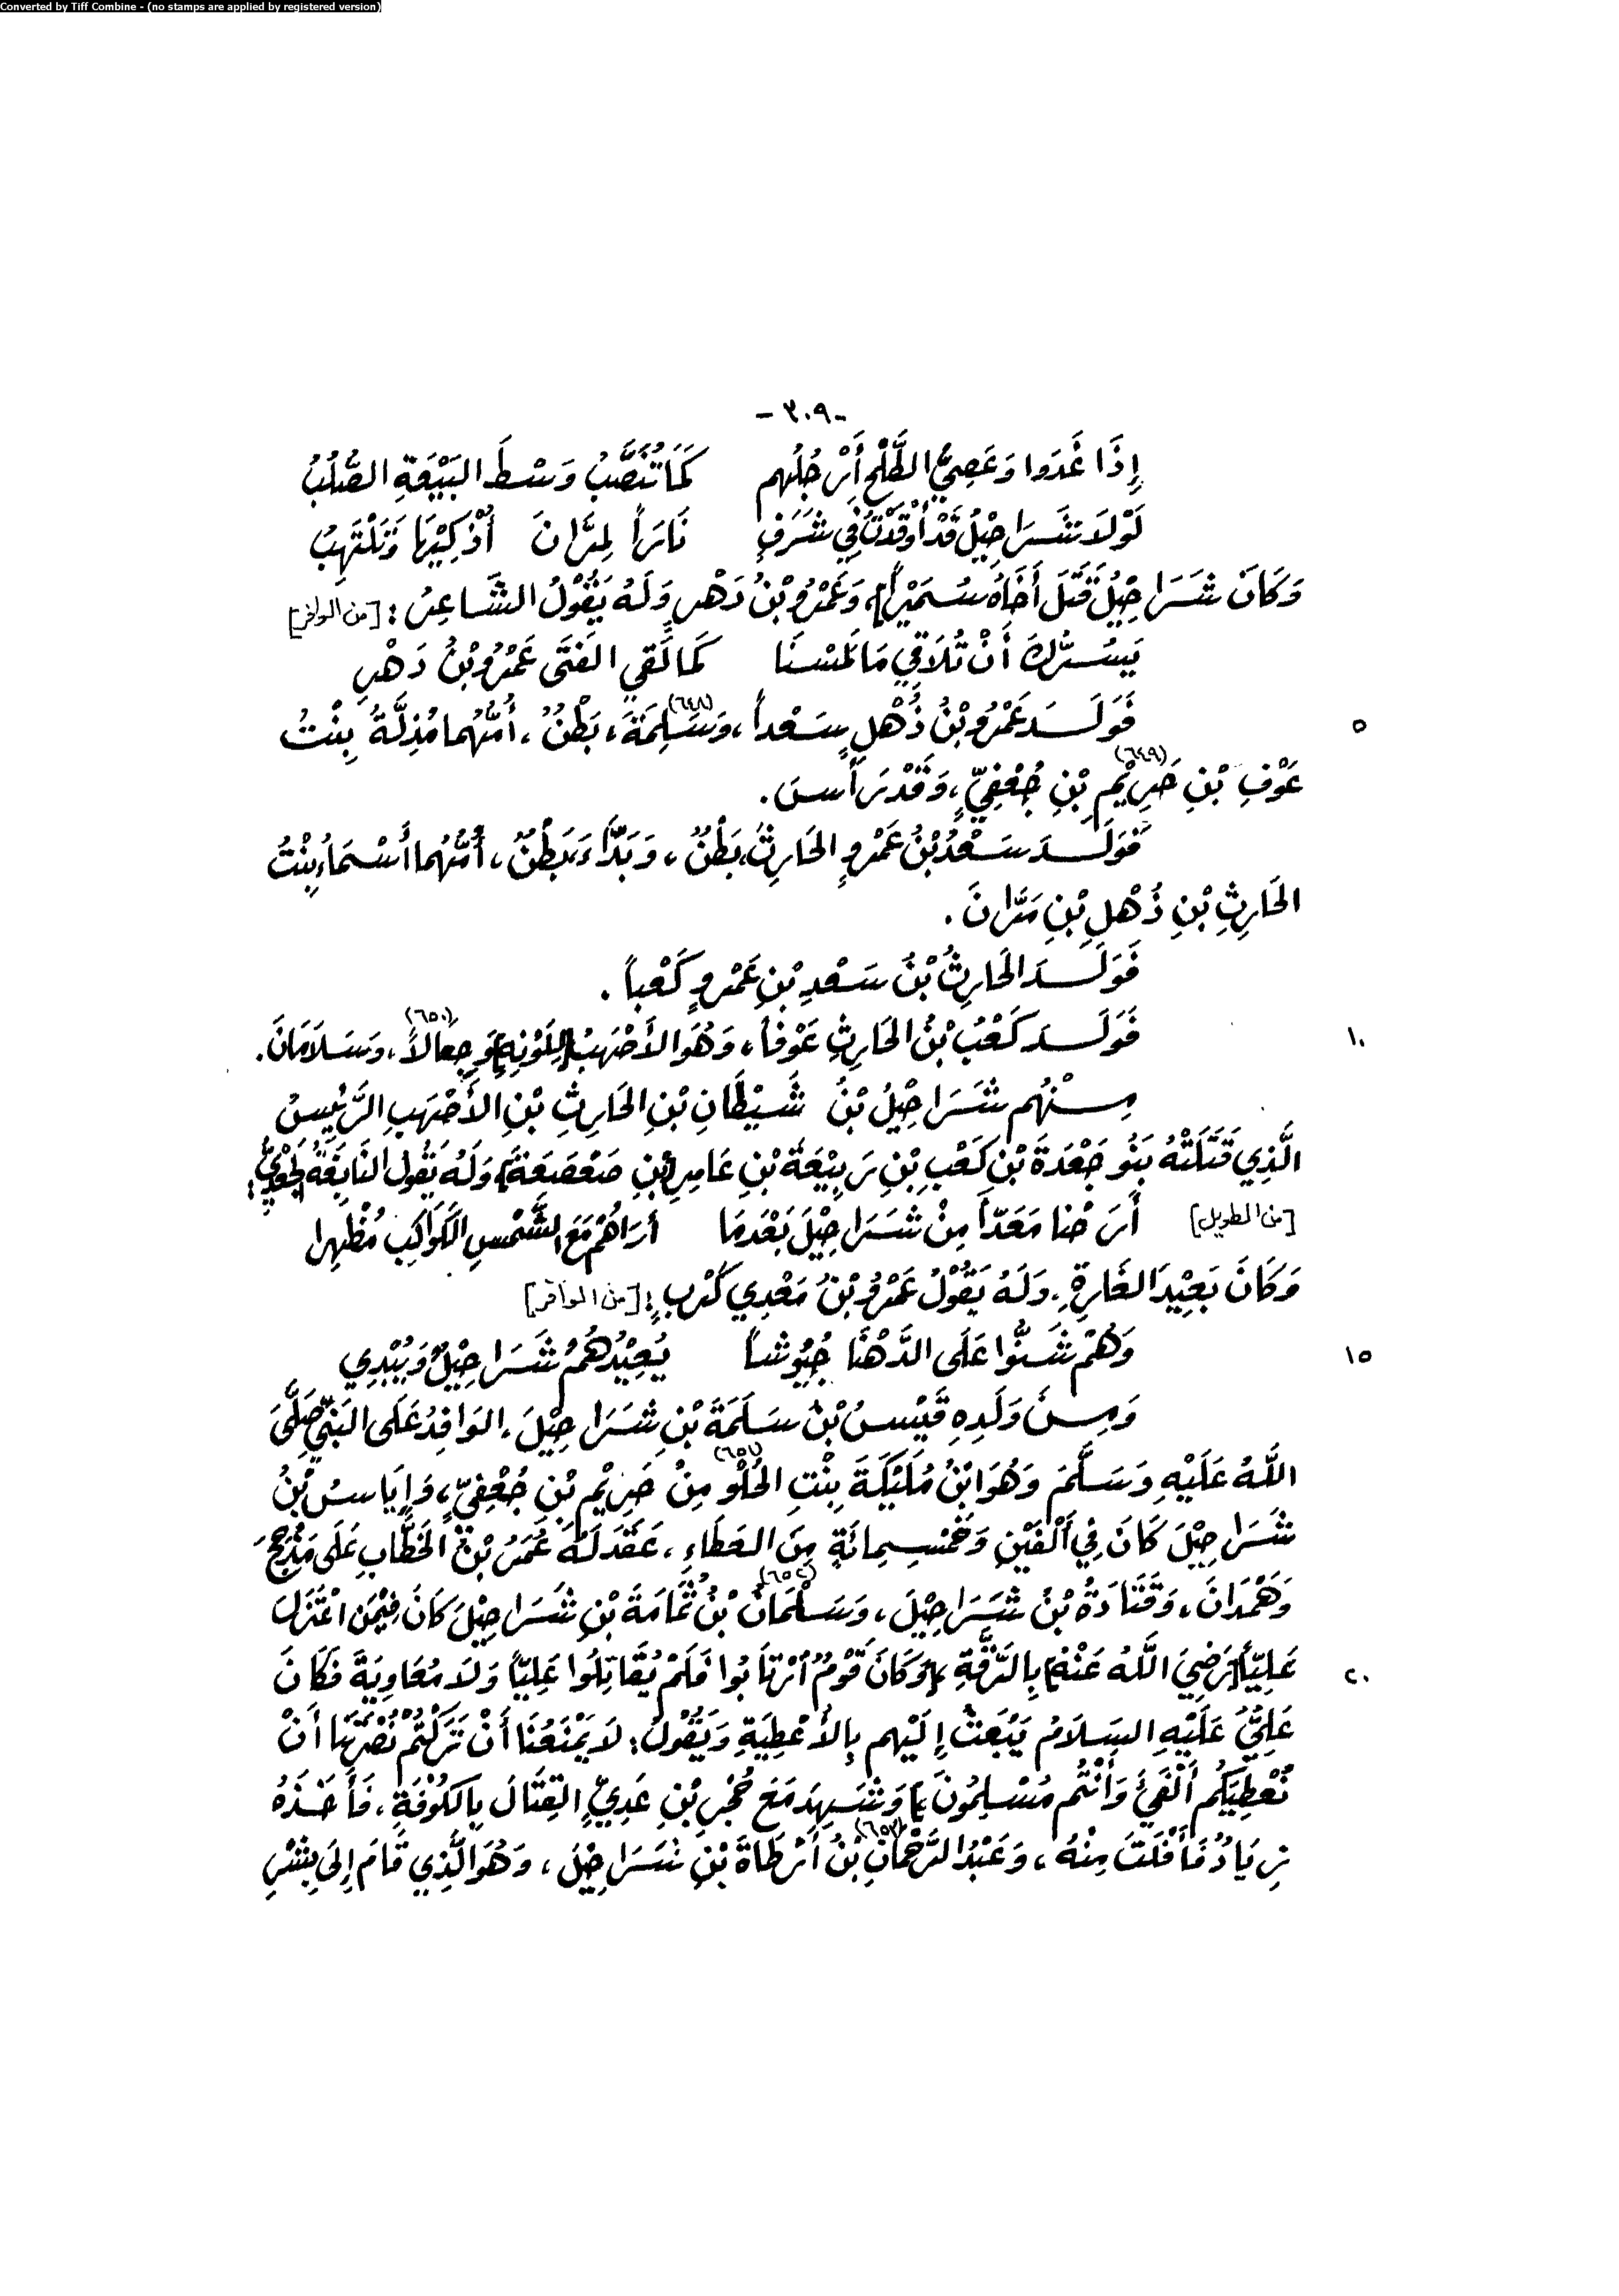 Converted by Tiff Combine - (no stamps are applied by registered version)
- ٣٠٩ -
إِذَا غَدَوا وَعَصِيُّ الطَّلْحِ أَرْجُلُهم كَمَا تُنَصَّبُ وَسْطَ البَيْعَةِ الصُّلُبُ
لَوْلاَ شَرَاحِيْلُ قَدْ أَوْقَدْتُ فِي شَرَفٍ نَارَاً لِمَرَّانَ أُذْكِيْهَا وَتَلْتَهِبُ
وَكَانَ شَرَاحِيْلُ قَتَلَ أَخَاهُ سُمَيْرَاً]، وَعَمْرُو بْنُ دَهْرٍ وَلَهُ يَقُوْلُ الشَّاعِرُ: [من الوافر]
يَسُرُّكَ أَنْ تُلاَقِي مَا لَمَسْنَا كَمَا لَقِي الفَتَى عَمْرُو بْنُ دَهْرِ
٥ فَوَلَدَ عَمْرُو بْنُ ذُهْلٍ سَعْداً، وَسَلِمَةَ (٦٤٨)، بَطْنٌ، أُمُّهُما مُذِلَّةُ بِنْتُ
عَوْفِ بْنِ حَرِيْمِ (٦٤٩) بْنِ جُعْفِيٍّ، وَقَدْ رَأَسَ.
فَوَلَدَ سَعْدُ بْنُ عَمْرٍو الحَارِثَ، بَطْنٌ، وَبَدَّاءَ، بَطْنٌ، أُمُّهُما أَسْمَاءُ بِنْتُ
الحَارِثِ بْنِ ذُهْلِ بْنِ مَرَّانَ.
فَوَلَدَ الحَارِثُ بْنُ سَعْدِ بْنِ عَمْرٍو كَعْباً.
١٠ فَوَلَدَ كَعْبُ بْنُ الحَارِثِ عَوْفاً، وَهُوَ الأَصْهَبُ [لِلَوْنِهِ] وَجِعَالاً (٦٥٠)، وَسَلاَمَانَ.
مِنْهُم شَرَاحِيْلُ بْنُ شَيْطَانِ بْنِ الحَارِثِ بْنِ الأَصْهَبِ الرَّئِيْسُ
الَّذِي قَتَلَتْهُ بَنُو جَعْدَةَ بْنِ كَعْبِ بْنِ رَبِيْعَةَ بْنِ عَامِرِ [بْنِ صَعْصَعَةَ] وَلَهُ يَقُولُ النَّابِغَةُ الجَعْدِيُّ:
[من الطويل] أَرَحْنا مَعَدّاً مِنْ شَرَاحِيْلَ بَعْدَمَا أَرَاهُمْ مَعَ الشَّمْسِ الكَوَاكِبَ مُظْهِرا
وَكَانَ بَعِيْدَ الغَارَةِ، وَلَهُ يَقُوْلُ عَمْرُو بْنُ مَعْدِي كَرْبٍ: [من الوافر]
١٥ وَهُمْ شَنُّوا عَلَى الدَّهْنَا جُيُوشاً يُعِيْدُهُمُ شَرَاحِيْلٌ وَيُبْدِي
وَمِنْ وَلَدِهِ قَيْسُ بْنُ سَلَمَةَ بْنِ شَرَاحِيْلَ، الوَافِدُ عَلَى النَّبِيِّ صَلَّى
اللَّهُ عَلَيْهِ وَسَلَّمَ وَهُوَ ابْنُ مُلَيْكَةَ بِنْتِ الحُلْوِ (٦٥١) مِنْ حَرِيْمِ بْنِ جُعْفِيٍّ، وَإِيَاسُ بْنُ
شَرَاحِيْلَ كَانَ فِي أَلْفَيْنِ وَخَمْسِمِائَةٍ مِنَ العَطَاءِ، عَقَدَ لَهُ عُمَرُ بْنُ الخَطَّابِ عَلَى مَذْحِجَ
وَهَمْدَانَ، وَقَتَادَةُ بْنُ شَرَاحِيْلَ، وَسَلْمَانُ (٦٥٢) بْنُ ثُمَامَةَ بْنِ شَرَاحِيْلَ كَانَ فِيْمَن اعْتَزَلَ
٢٠ عَلِيّاً [رَضِيَ اللَّهُ عَنْهُ] بِالرَّقَّةِ، [وَكَانَ قَوْمٌ ارْتَابُوا فَلَمْ يُقَاتِلُوا عَلِيّاً وَلاَ مُعَاوِيَةَ فَكَانَ
عَلِيٌّ عَلَيْهِ السلامُ يَبْعَثُ إِلَيْهِم بِالأُعْطِيَةِ وَيَقُوْلُ: لاَ يَمْنَعُنَا أَنْ تَرَكْتُمْ نُصْرَتَنَا أَنْ
نُعْطِيَكُم الفَيْءَ وَأَنْتُم مُسْلِمُونَ] وَشَهِدَ مَعَ حُجْرِ بْنِ عَدِيٍّ القِتَالَ بِالكُوْفَةِ، فَأَخَذَهُ
زِيَادٌ فَأَفْلَتَ مِنْهُ، وَعَبْدُ الرَّحْمَانِ (٦٥٣) بْنُ أَرْطَاةَ بْنِ شَرَاحِيْلَ، وَهُوَ الَّذِي قَامَ إِلَى بِشْرِ